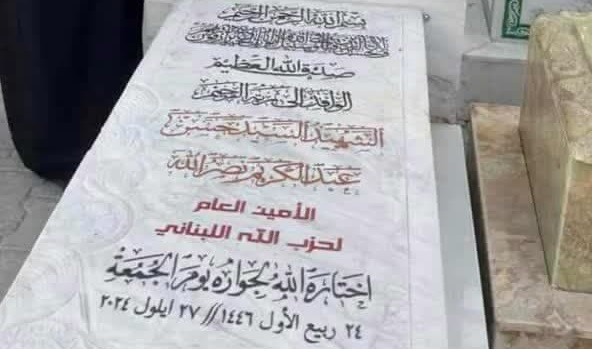 بسم الله الرحمن الرحيم
صدق الله العظيم
الوافد الى ربه الرحيم
الشهيد السيد حسن
عبد الكريم نصر الله
الأمين العام
لحزب الله اللبناني
اختاره الله لجواره يوم الجمعة
٢٤ ربيع الأول ١٤٤٦ // ٢٧ ايلول ٢٠٢٤